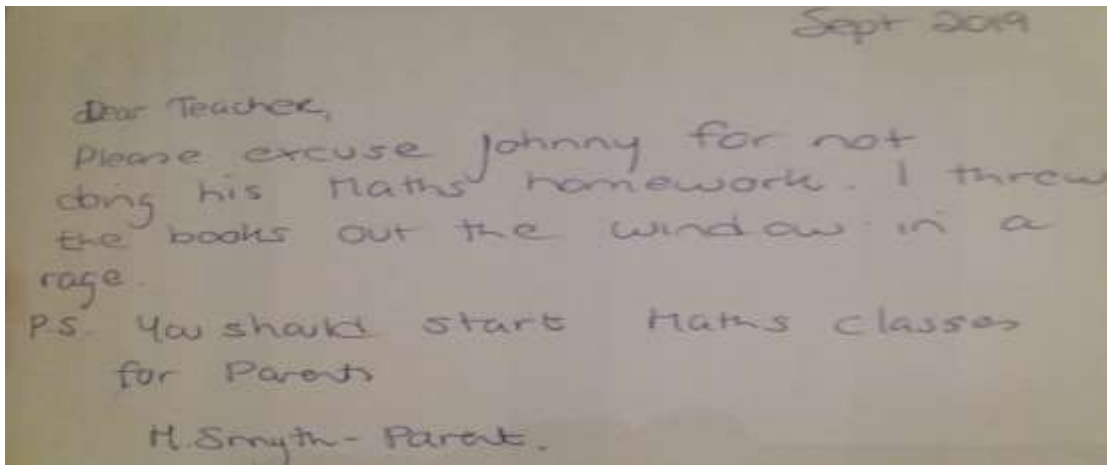 Sept 2019
Dear Teacher,
Please excuse Johnny for not
doing his Maths homework. I threw
the books out the window in a
rage.
P.S. You should start Maths classes
for Parents
M. Smyth - Parent.